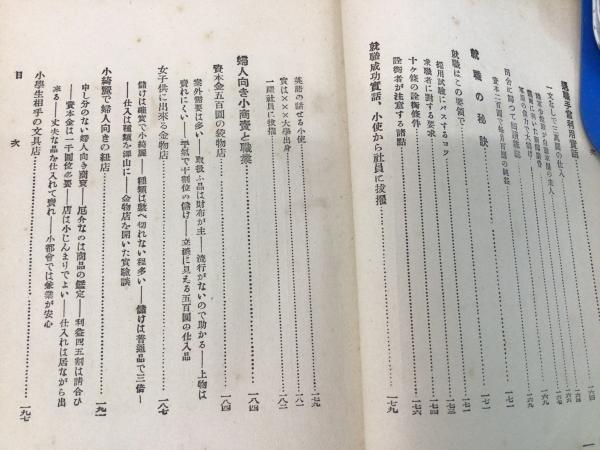 退職手當利用實話
一文なしで三萬圓の仕入
就職の秘訣
就職はこの要領で……一七一
採用試験にパスするコツ……一七三
求職者に對する要求……一七四
十ヶ條の銓衡條件……一七六
銓衡者が注意する諸點
就職成功實話、小使から社員に拔擢……一七九
英語の話せる小使……一七九
實は×××大學出身……一八一
一躍社員に拔擢……一八二
婦人向き小商賣と職業……一八四
資本金五百圓の袋物店……一八四
案外需要は多い――取扱ふ品は財布が主――流行がないので助かる――上物は
賣れにくい――平氣で十割位の儲け――立派に見える五百圓の仕入品
女子供に出來る金物店……一八七
儲けは確實で小綺麗――種類は數へ切れない程多い――儲けは普通品で三倍――
――仕入は種類を澤山に――金物店を開いた實驗談
小綺麗で婦人向きの紐店……一九一
申し分のない婦人向き商賣――厄介なのは商品の鑑定――利益四五割は請合ひ
――資本金は一千圓位必要――店は小じんまりでよい――仕入れは居ながら出
來る――丈夫な品を仕入れて賣れ――小都會では兼業が安心
小學生相手の文具店……一九七
目次